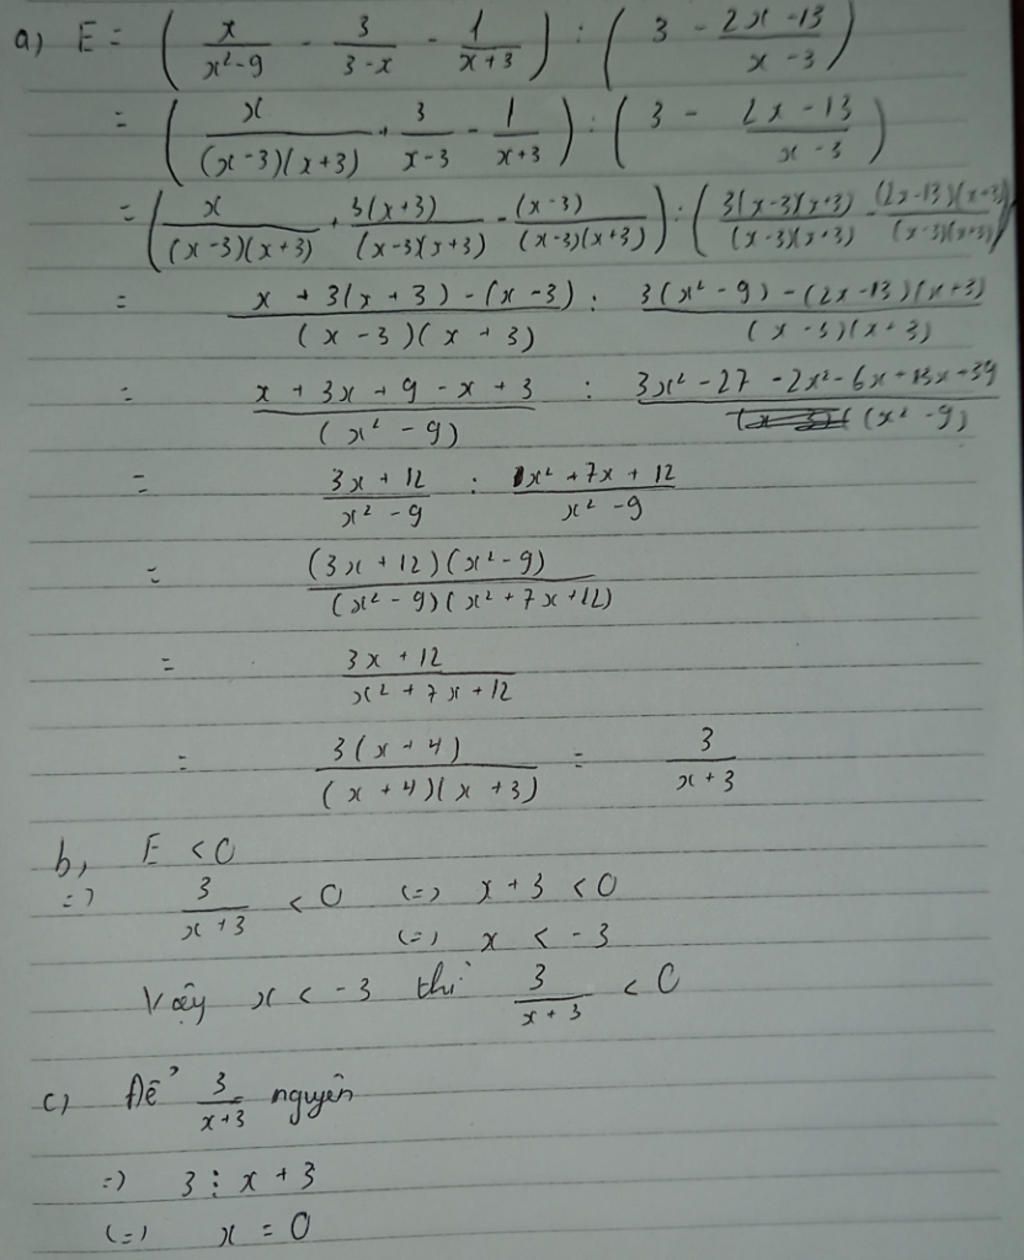 a) E = ( x/(x²-9) - 3/(3-x) - 1/(x+3) ) : ( 3 - (2x-13)/(x-3) )
= ( x/((x-3)(x+3)) + 3/(x-3) - 1/(x+3) ) : ( 3 - (2x-13)/(x-3) )
= ( x/((x-3)(x+3)) + 3(x+3)/((x-3)(x+3)) - (x-3)/((x-3)(x+3)) ) : ( 3(x-3)(x+3)/((x-3)(x+3)) - (2x-13)(x+3)/((x-3)(x+3)) )
= (x + 3(x+3) - (x-3))/((x-3)(x+3)) : (3(x²-9) - (2x-13)(x+3))/((x-3)(x+3))
= (x + 3x + 9 - x + 3)/(x²-9) : (3x² - 27 - 2x² - 6x + 13x + 39)/(x²-9)
= (3x + 12)/(x² - 9) : (x² + 7x + 12)/(x² - 9)
= (3x + 12)(x² - 9)/((x² - 9)(x² + 7x + 12))
= (3x + 12)/(x² + 7x + 12)
= 3(x + 4)/((x + 4)(x + 3)) = 3/(x + 3)
b, E < 0
=> 3/(x+3) < 0 (=) x + 3 < 0
(=) x < -3
Vậy x < -3 thì 3/(x+3) < 0
c) Để 3/(x+3) nguyên
=) 3 ⋮ x + 3
(=) x = 0